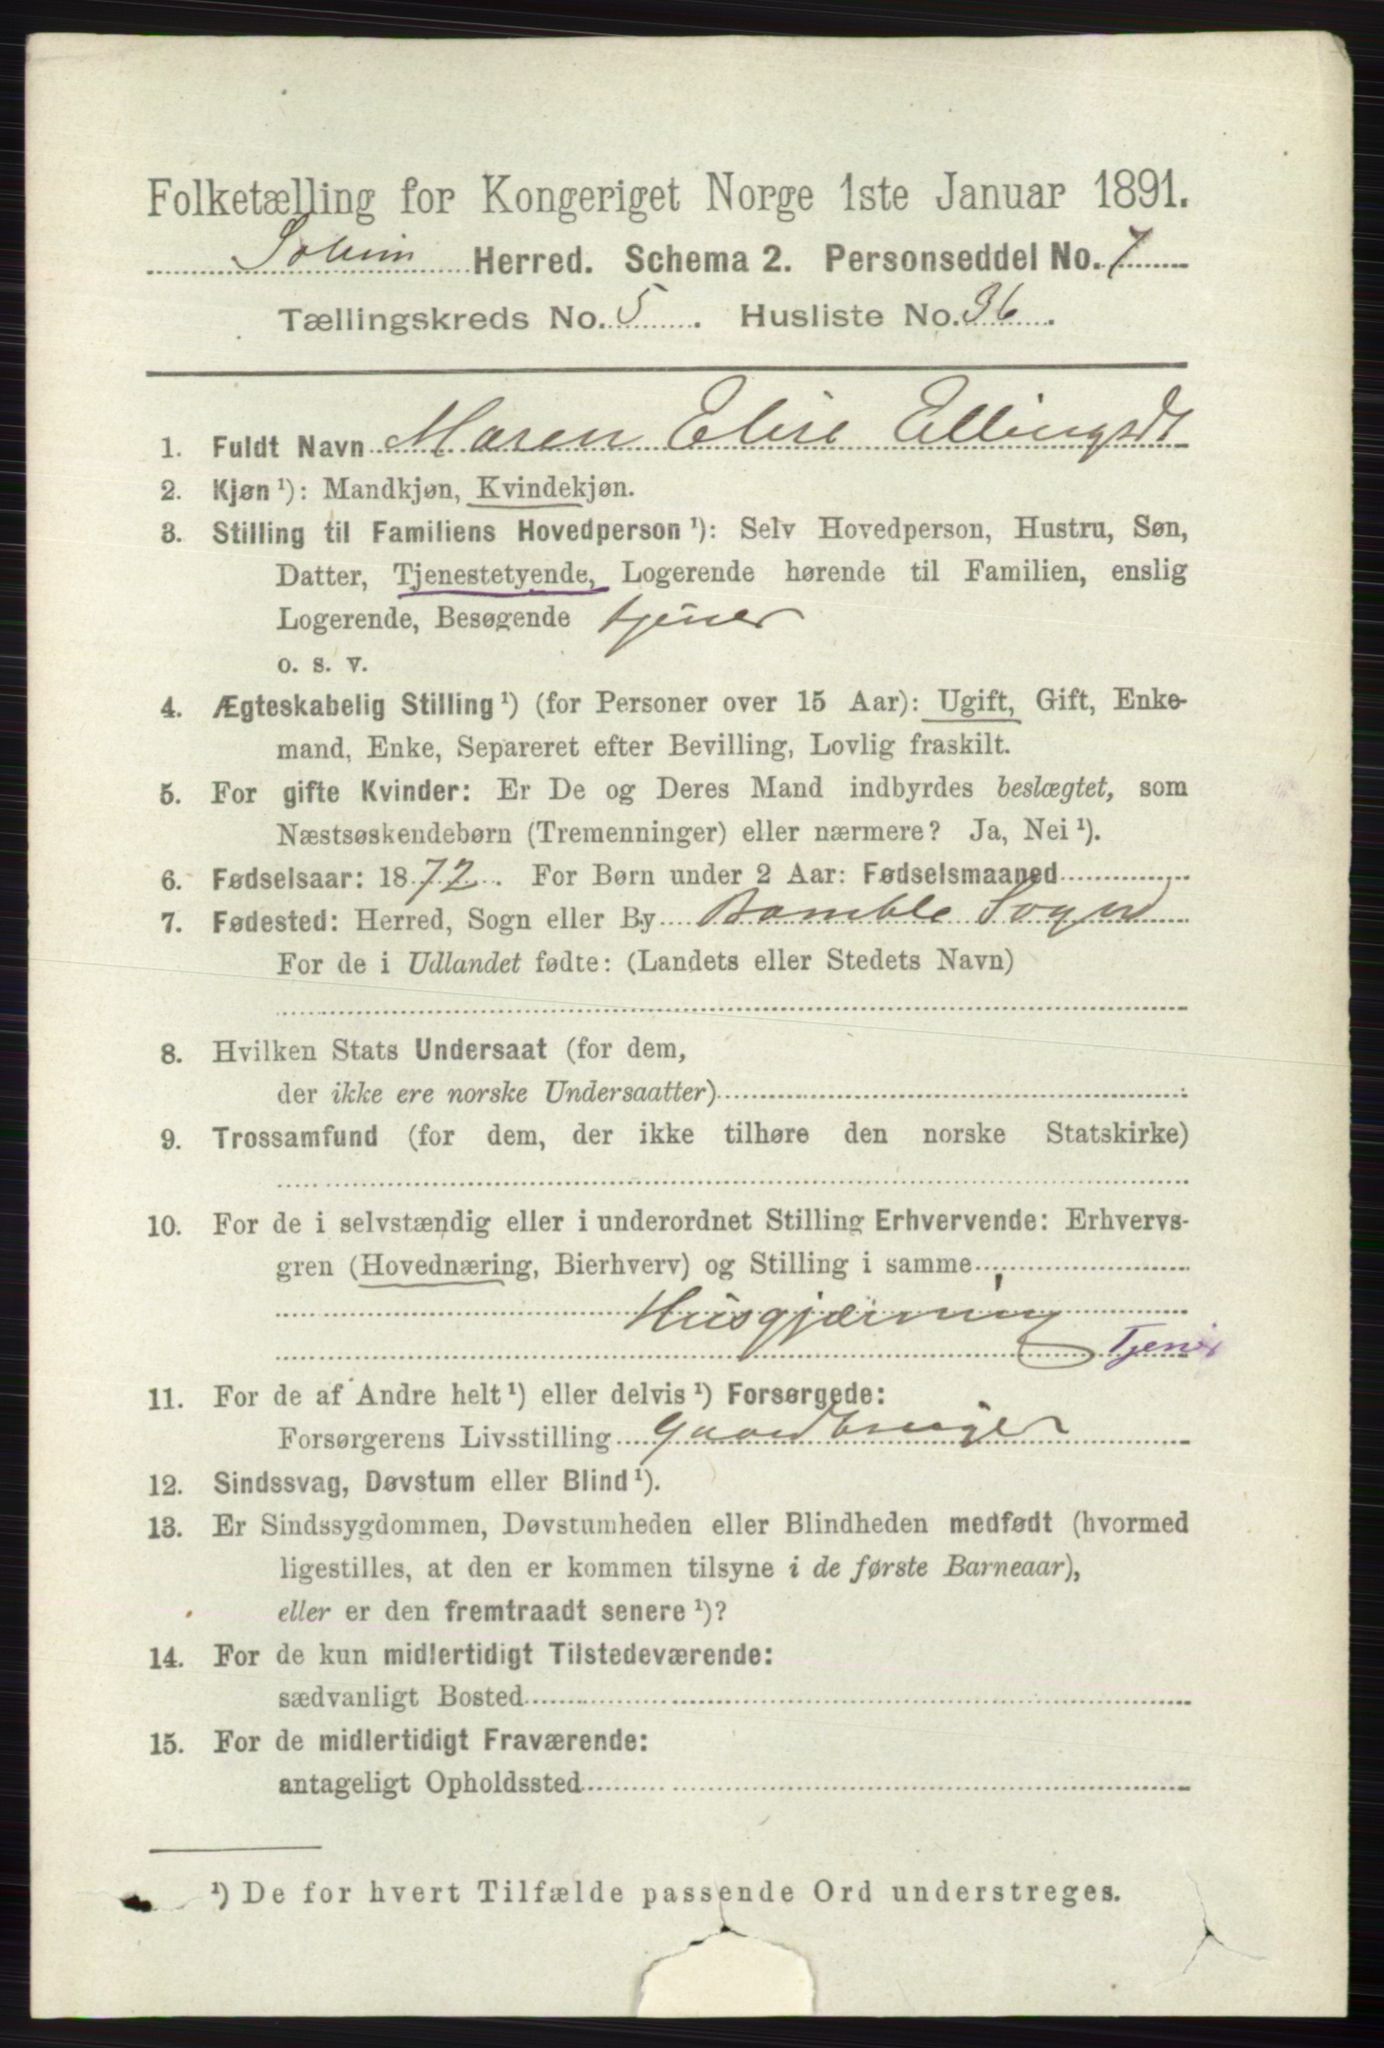 Folketælling for Kongeriget Norge 1ste Januar 1891.
Solum Herred. Schema 2. Personseddel No. 7
Tællingskreds No. 5. Husliste No. 36.
1. Fuldt Navn Maren Elise Ellingsdt
2. Kjøn ¹): Mandkjøn, Kvindekjøn.
3. Stilling til Familiens Hovedperson ¹): Selv Hovedperson, Hustru, Søn,
Datter, Tjenestetyende, Logerende hørende til Familien, enslig
Logerende, Besøgende tjener
o. s. v.
4. Ægteskabelig Stilling ¹) (for Personer over 15 Aar): Ugift, Gift, Enke-
mand, Enke, Separeret efter Bevilling, Lovlig fraskilt.
5. For gifte Kvinder: Er De og Deres Mand indbyrdes beslægtet, som
Næstsøskendebørn (Tremenninger) eller nærmere? Ja, Nei ¹).
6. Fødselsaar: 1872. For Børn under 2 Aar: Fødselsmaaned
7. Fødested: Herred, Sogn eller By Bamble Sogn
For de i Udlandet fødte: (Landets eller Stedets Navn)
8. Hvilken Stats Undersaat (for dem,
der ikke ere norske Undersaatter)
9. Trossamfund (for dem, der ikke tilhøre den norske Statskirke)
10. For de i selvstændig eller i underordnet Stilling Erhvervende: Erhvervs-
gren (Hovednæring, Bierhverv) og Stilling i samme
Husgjærning
Tjener
11. For de af Andre helt ¹) eller delvis ¹) Forsørgede:
Forsørgerens Livsstilling Gaardbruger
12. Sindssvag, Døvstum eller Blind ¹).
13. Er Sindssygdommen, Døvstumheden eller Blindheden medfødt (hvormed
ligestilles, at den er kommen tilsyne i de første Barneaar),
eller er den fremtraadt senere ¹)?
14. For de kun midlertidigt Tilstedeværende:
sædvanligt Bosted
15. For de midlertidigt Fraværende:
antageligt Opholdssted
¹) De for hvert Tilfælde passende Ord understreges.